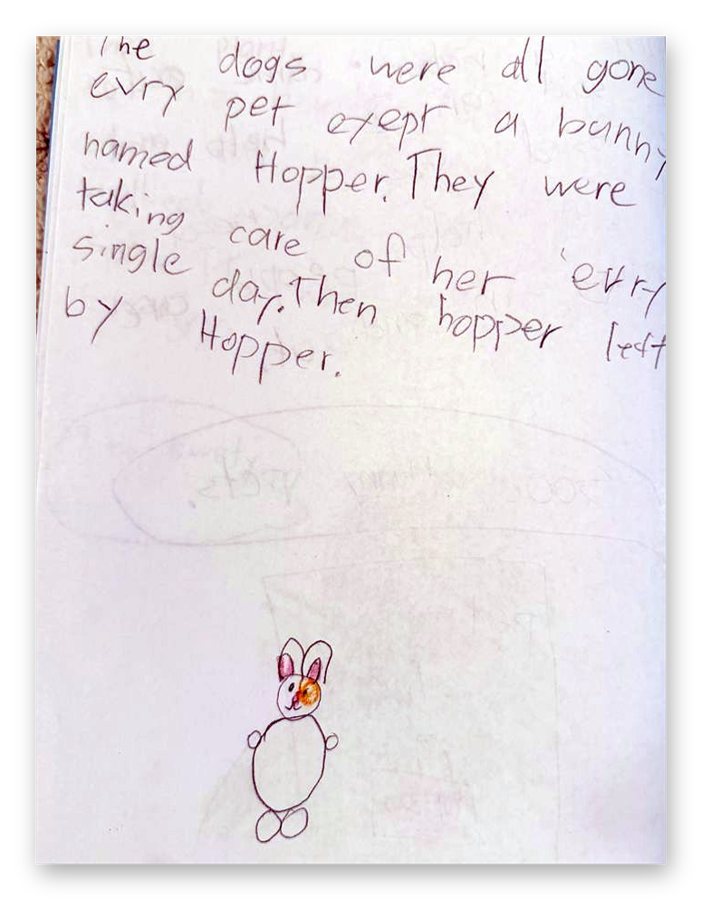 The dogs were all gone
evry pet exept a bunny
named Hopper. They were
taking care of her evry
single day. Then hopper left
by Hopper.